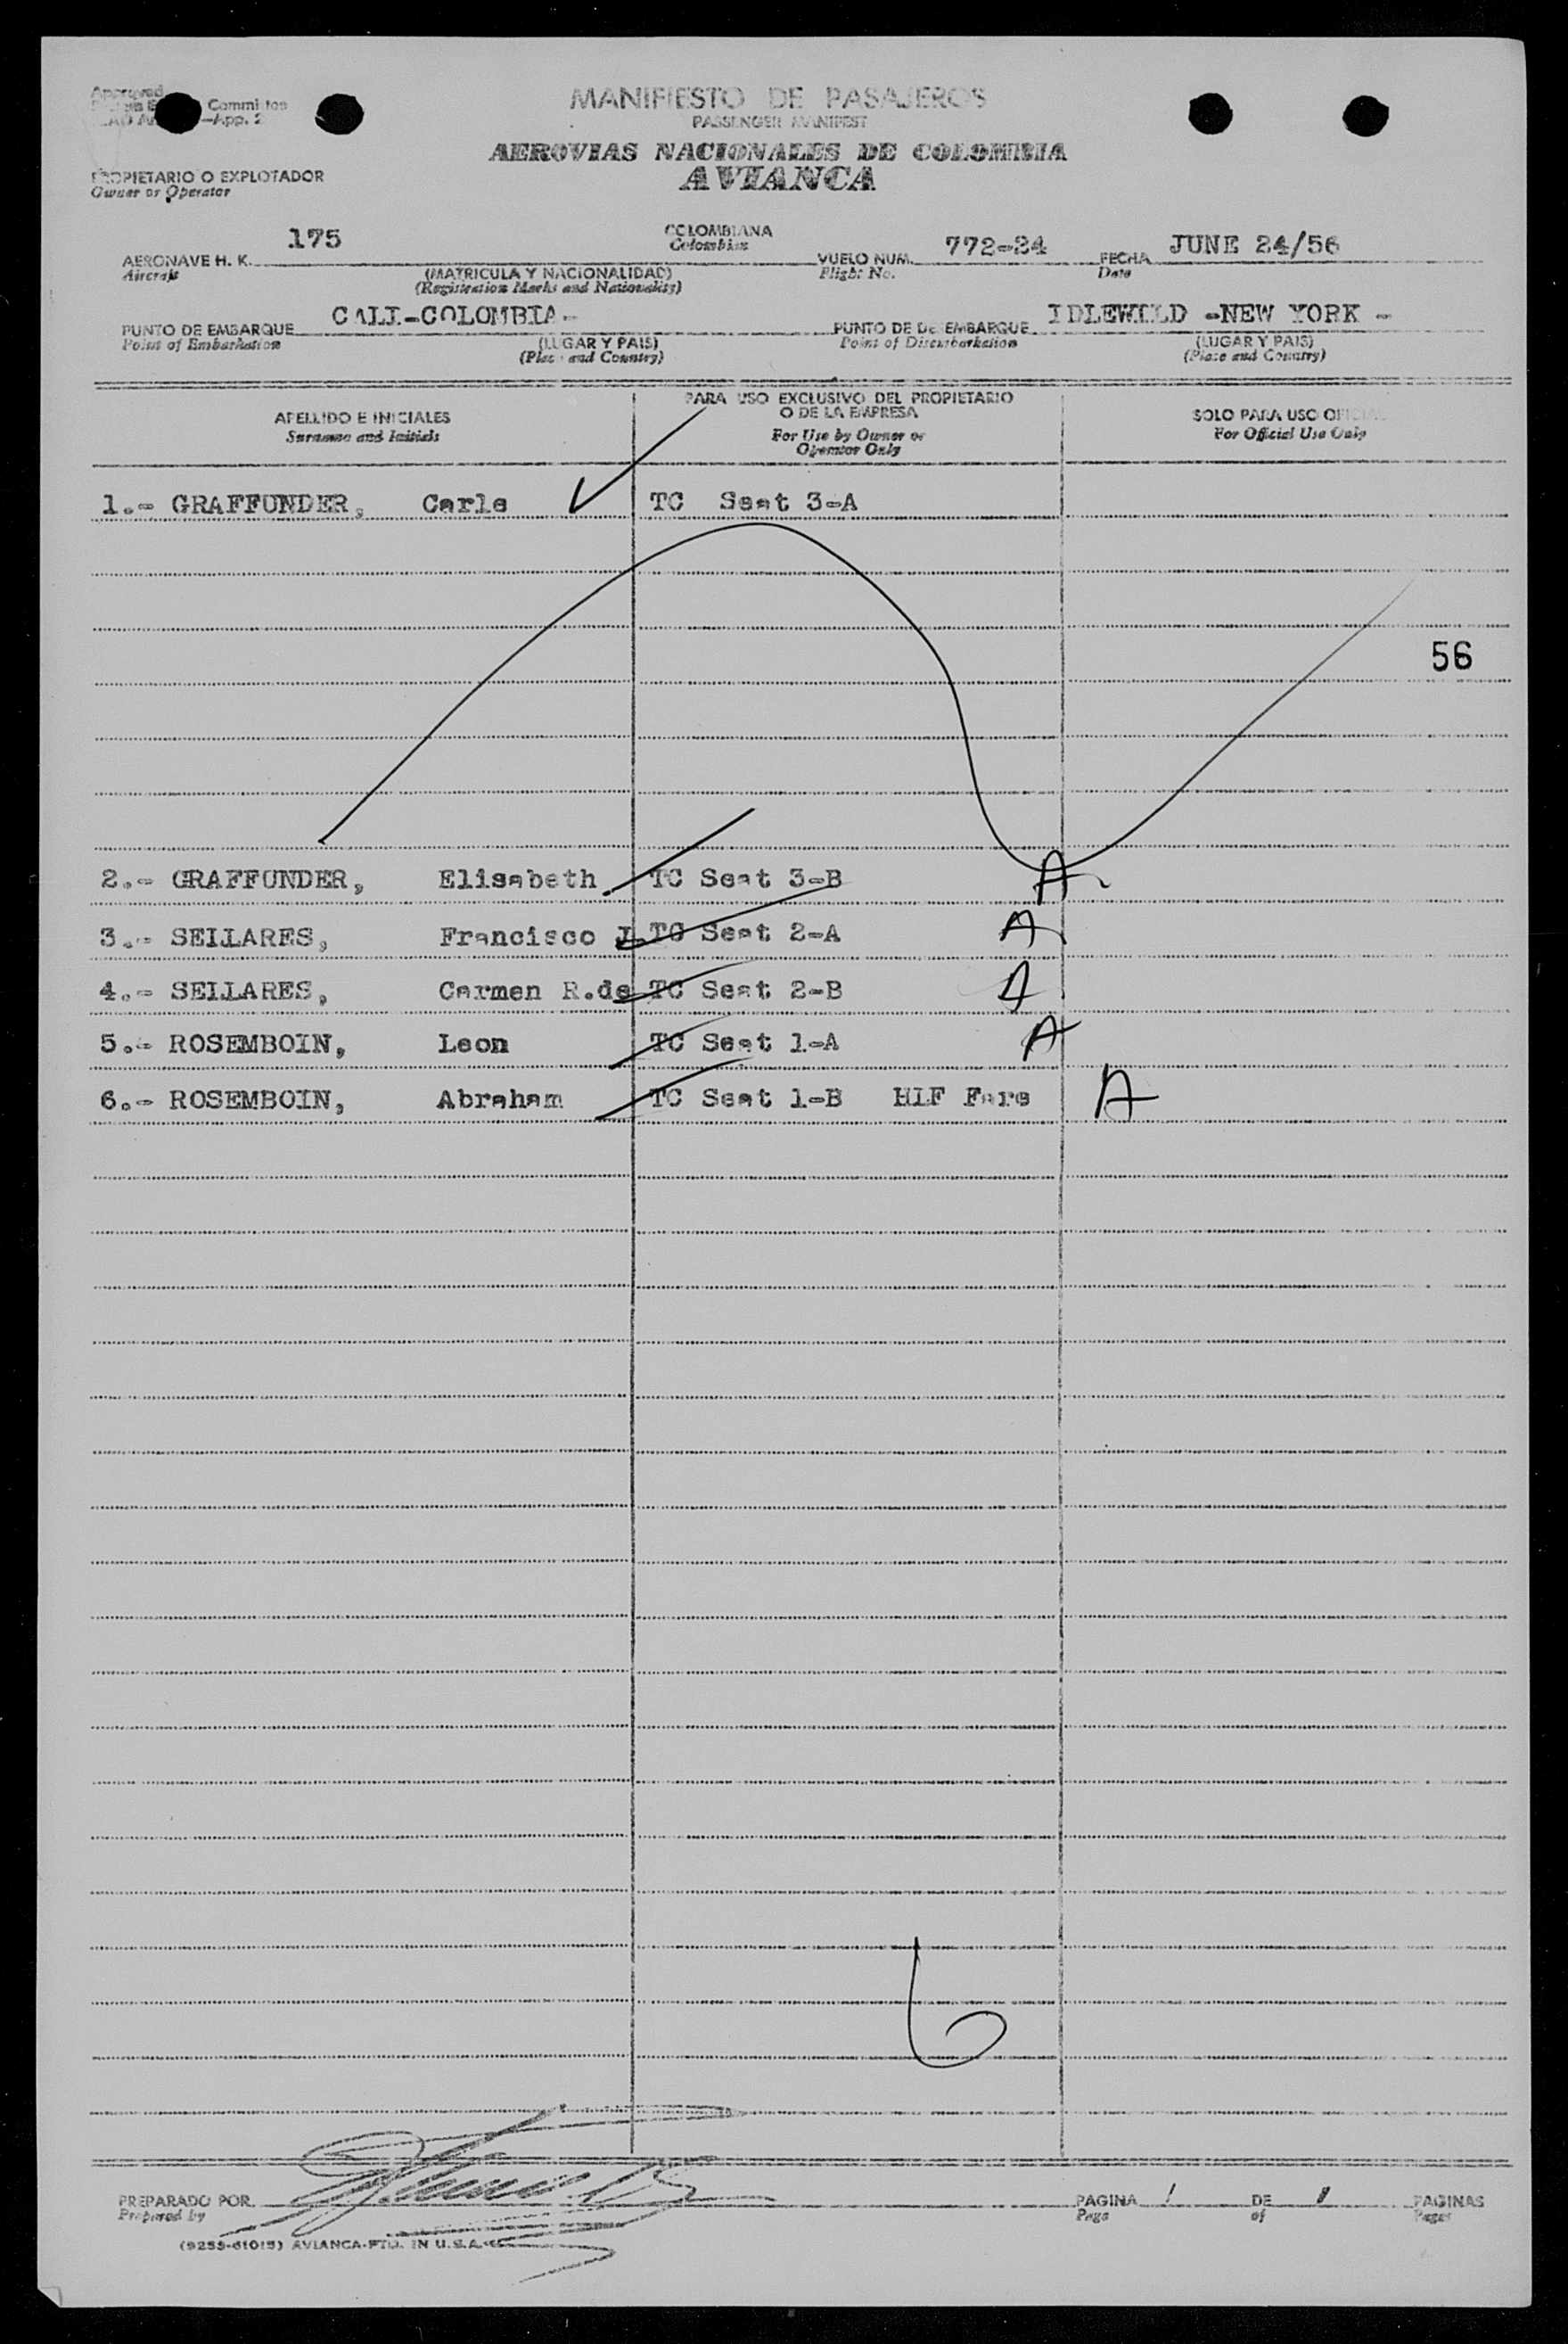 Approved
Committee
—App. 2
MANIFIESTO DE PASAJEROS
PASSENGER MANIFEST
AEROVIAS NACIONALES DE COLOMBIA
AVIANCA
PROPIETARIO O EXPLOTADOR
Owner or Operator
175 COLOMBIANA 772-24 JUNE 24/56
Colombian
AERONAVE H. K. VUELO NUM. FECHA
Aircraft (MATRICULA Y NACIONALIDAD) Flight No. Date
(Registration Marks and Nationality)
CALI-COLOMBIA- IDLEWILD -NEW YORK -
PUNTO DE EMBARQUE PUNTO DE DESEMBARQUE
Point of Embarkation (LUGAR Y PAIS) Point of Disembarkation (LUGAR Y PAIS)
(Place and Country) (Place and Country)
APELLIDO E INICIALES PARA USO EXCLUSIVO DEL PROPIETARIO SOLO PARA USO OFICIAL
Surname and Initials O DE LA EMPRESA For Official Use Only
For Use by Owner or
Operator Only
1.- GRAFFUNDER, Carle TC Seat 3-A
56
2.- GRAFFUNDER, Elisabeth TC Seat 3-B A
3.- SELLARES, Francisco J. TC Seat 2-A A
4.- SELLARES, Carmen R.de TC Seat 2-B A
5.- ROSEMBOIN, Leon TC Seat 1-A A
6.- ROSEMBOIN, Abraham TC Seat 1-B HLF Fare A
6
PREPARADO POR PAGINA 1 DE 1 PAGINAS
Prepared by Page of Pages
(9255-61015) AVIANCA-PTD. IN U.S.A.